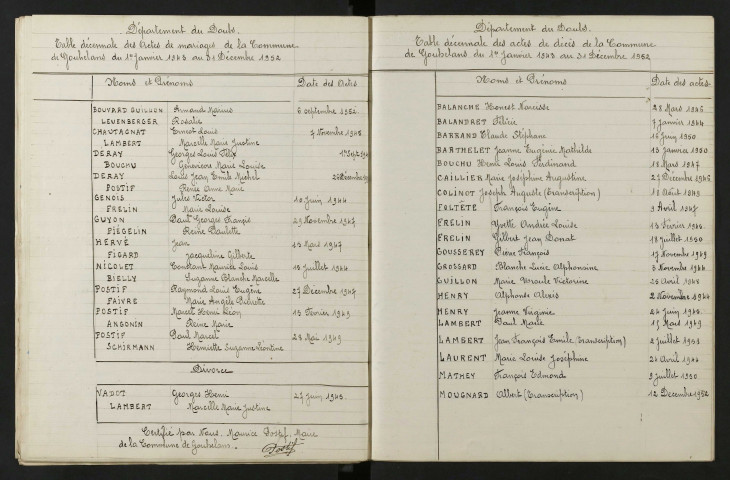 Département du Doubs.
Table décennale des Actes de mariages de la Commune
de Gouhelans du 1er Janvier 1943 au 31 Décembre 1952
Noms et Prénoms Date des Actes
BOUVARD GUILLON Armand Marius 6 septembre 1952
LEUENBERGER Rosalie
CHAUTAGNAT Ernest Louis 7 Novembre 1948
LAMBERT Marcelle Marie Justine
DERAY Georges Louis Félix
BOUCHU Geneviève Marie Louise
DERAY Louis Jean Emile Michel
POSTIF Renée Anne Marie
GENOIS Jules Victor 10 Juin 1944
FRELIN Marie Louise
GUYON Paul Georges François 29 Novembre 1947
PIÉGELIN Reine Paulette
HERVÉ Jean 15 Mars 1947
FIGARD Jacqueline Gilberte
NICOLET Constant Maurice Louis 13 Juillet 1944
BIELLY Suzanne Blanche Marcelle
POSTIF Raymond Louis Eugène 27 Décembre 1947
FAIVRE Marie Angèle
POSTIF Marcel Henri Léon 15 Février 1949
ANGONIN Reine Marie
POSTIF Paul Marcel 28 Mai 1949
SCHIRMANN Henriette Suzanne Léontine
Divorce
VADOT Georges Henri 27 Juin 1949.
LAMBERT Marcelle Marie Justine
Certifié par Nous, Maurice Postif, Maire
de la Commune de Gouhelans.
Postif
Département du Doubs.
Table décennale des actes de décès de la Commune
de Gouhelans du 1er Janvier 1943 au 31 Décembre 1952
Noms et Prénoms Date des actes.
BALANCHE Honest Narcisse 28 Mars 1946
BALANDRET 7 Janvier 1944
BARRAND Claude Stéphane 16 Juin 1950
BARTHELET Jeanne Eugénie Mathilde 13 Janvier 1950
BOUCHU Henri Louis Ferdinand 18 Mars 1947
CAILLIER Marie Joséphine Augustine 27 Décembre 1946
COLINOT Joseph Auguste (Transcription) 11 Août 1949
FALTETE François Eugène 9 Avril 1947
FRELIN Yvette Andrée Louise 13 Février 1949
FRELIN Gilbert Jean Donat 18 Juillet 1950
GOUSSEREY Pierre François 17 Novembre 1949
GROSSARD Blanche Lucie Alphonsine 5 Novembre 1944
GUILLON Marie Ursule Victorine 26 Avril 1948
HENRY Alphonse Alexis 2 Novembre 1944
HENRY Jeanne Virginie 24 Juin 1949
LAMBERT Paul Marie 15 Mars 1949
LAMBERT Jean François Emile (Transcription) 2 Juillet 1951
LAURENT Marie Louise Joséphine 26 Avril 1944
MATHEY François Edmond 9 Juillet 1950
MOUGNARD Albert (Transcription) 12 Décembre 1952